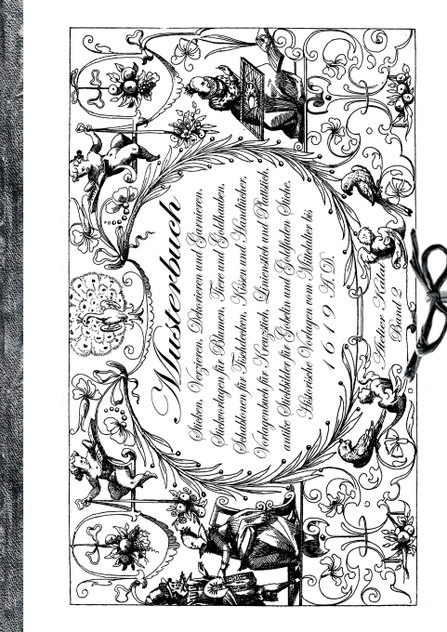 Musterbuch
Sticken, Verzieren, Dekorieren und Garnieren.
Stickvorlagen für Blumen, Tiere und Goldhauben,
Schablonen für Tischdecken, Kissen und Handtücher,
Vorlagenbuch für Kreuzstich, Leinenstich und Plattstich,
antike Stickbilder für Gobelin und Goldfaden Sticke.
Historische Vorlagen vom Mittelalter bis
1619 A.D.
Atelier
Band 2